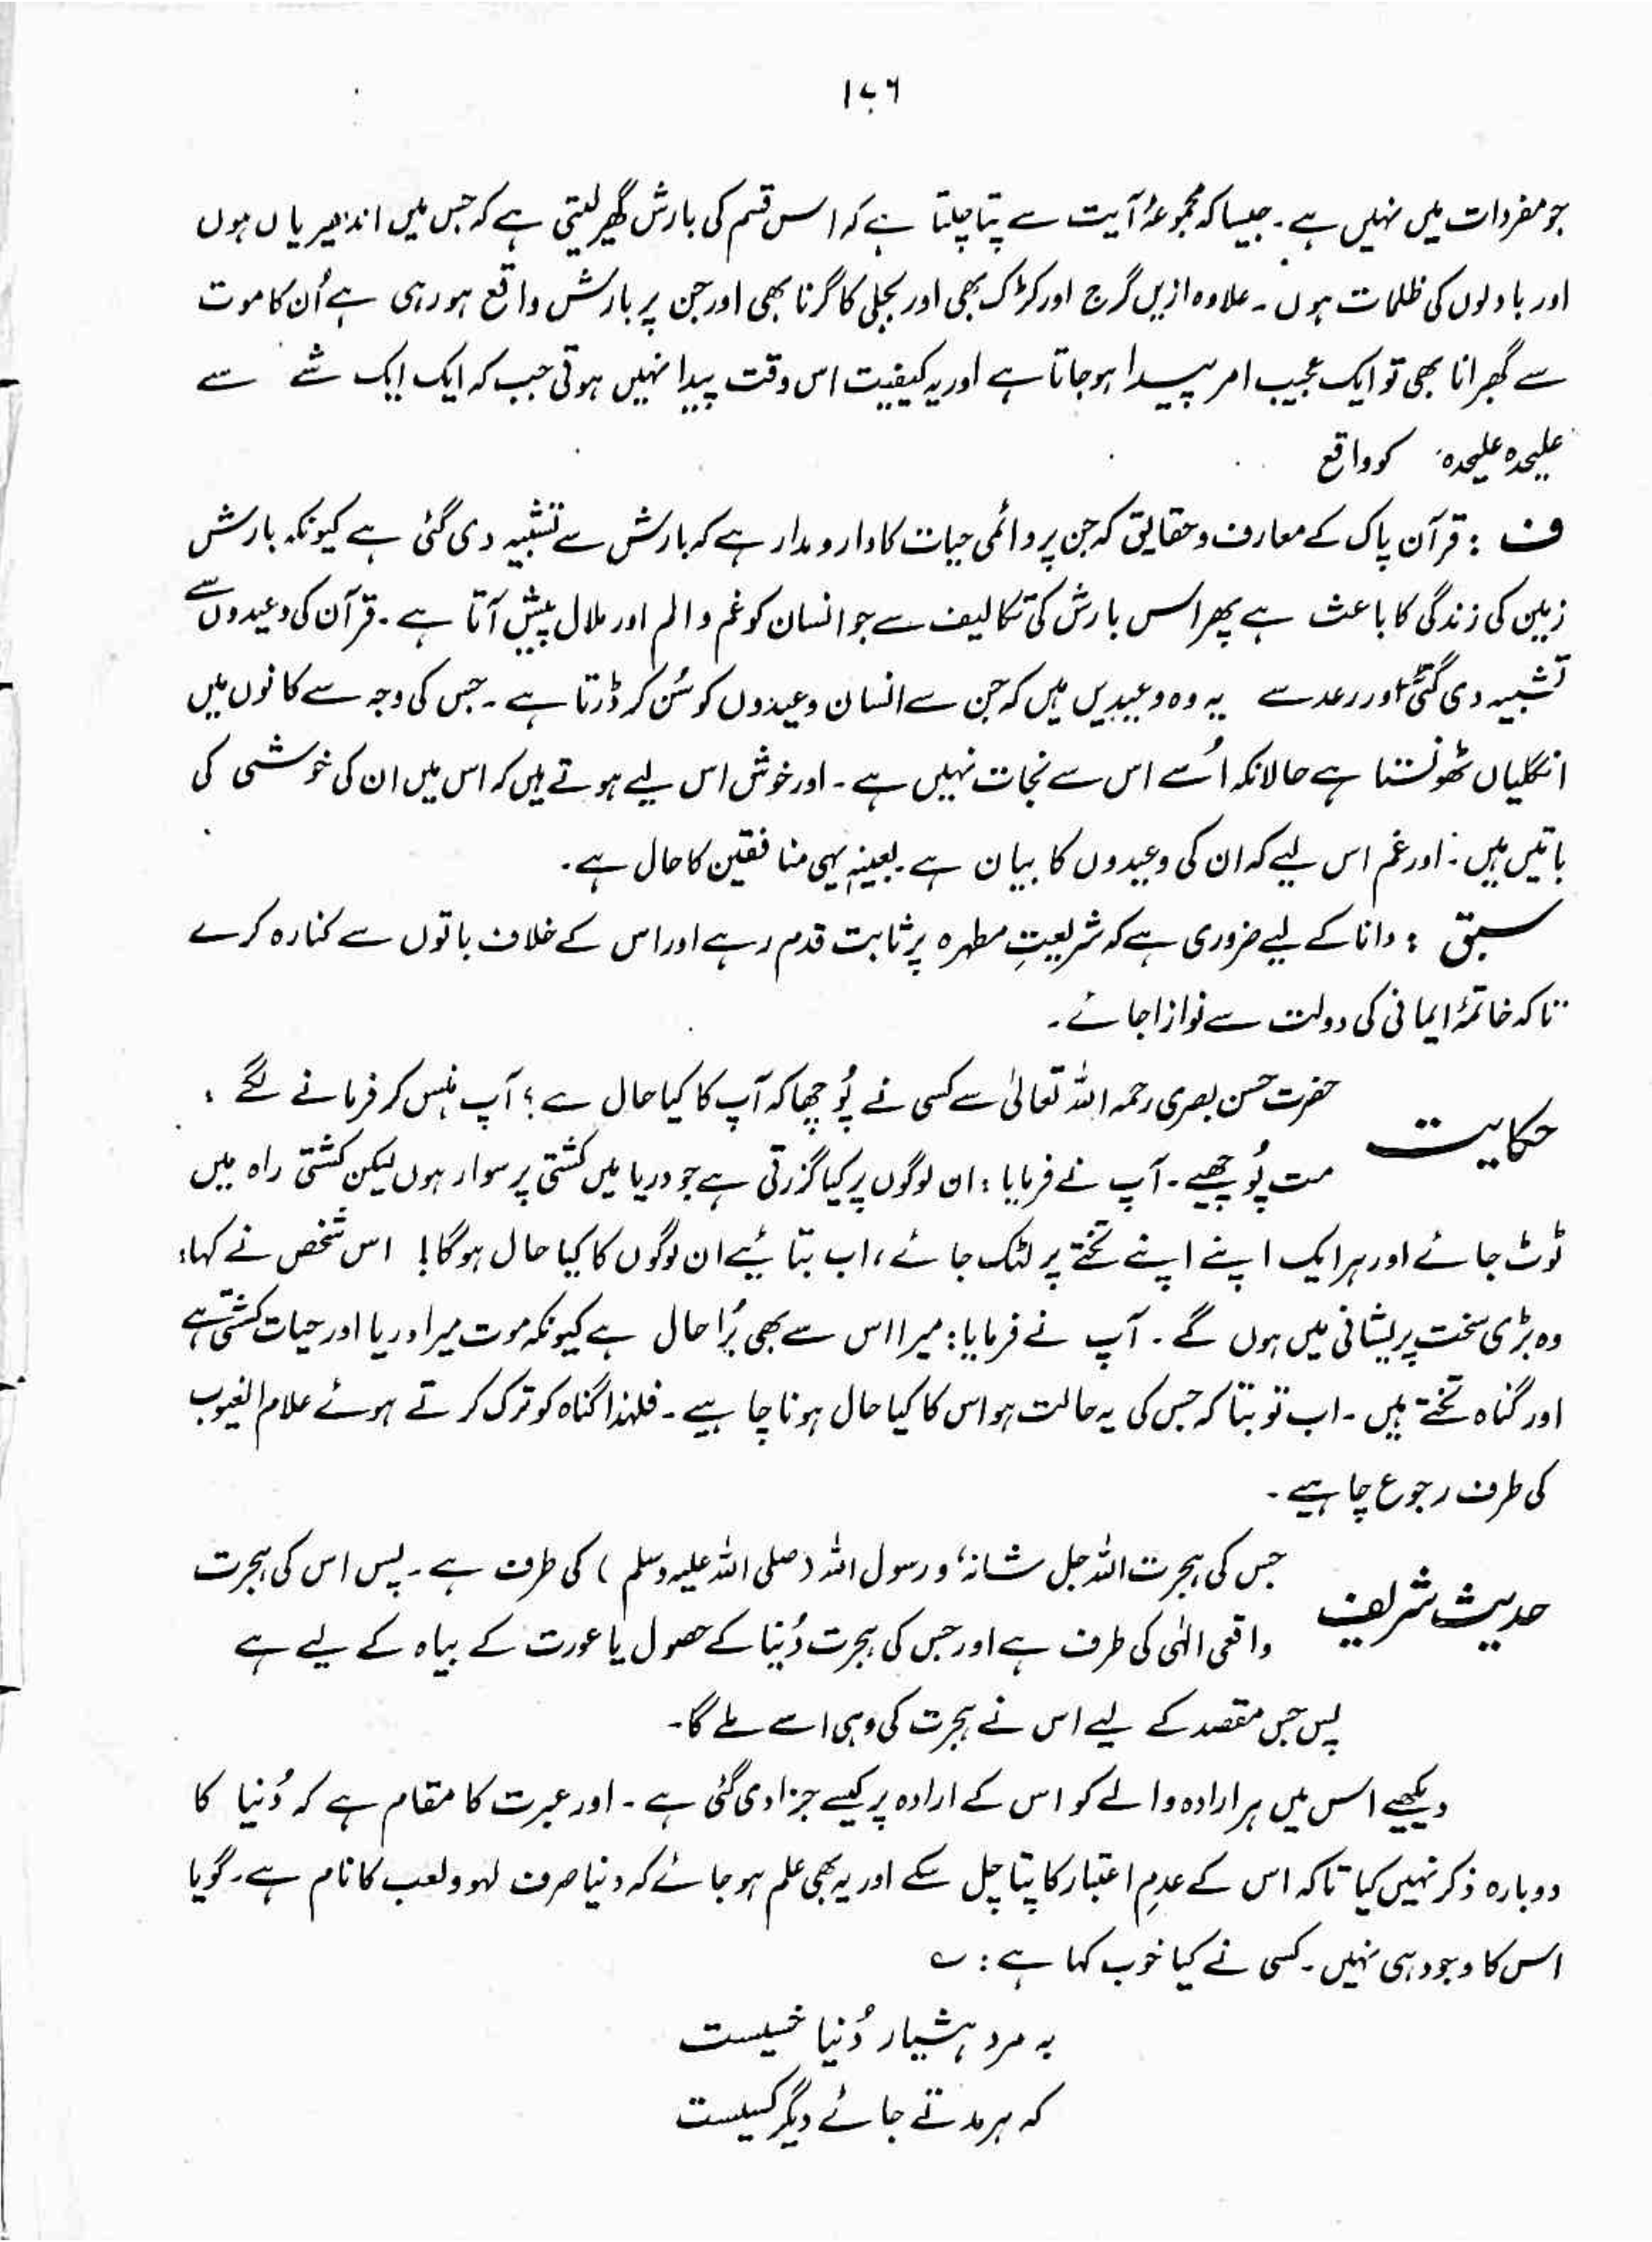 ۱۷۶
جو مفردات میں نہیں ہے۔ جیسا کہ مجموعۂ آیت سے پتا چلتا ہے کہ اس قسم کی بارش گھیر لیتی ہے کہ جس میں اندھیریاں ہوں
اور بادلوں کی ظلمات ہوں۔ علاوہ ازیں گرج اور کڑک بھی اور بجلی کا گرنا بھی اور جن پر بارش واقع ہو رہی ہے اُن کا موت
سے گھبرانا بھی تو ایک عجیب امر پیدا ہو جاتا ہے اور یہ کیفیت اس وقت پیدا نہیں ہوتی جب کہ ایک ایک شے سے
علیحدہ علیحدہ کو واقع
ف : قرآن پاک کے معارف و حقایق کہ جن پر دائمی حیات کا دارومدار ہے کہ بارش سے تشبیہ دی گئی ہے کیونکہ بارش
زمین کی زندگی کا باعث ہے پھر اس بارش کی تکالیف سے جو انسان کو غم و الم اور ملال پیش آتا ہے۔ قرآن کی وعیدوں سے
تشبیہ دی گئی اور رعد سے یہ وہ وعیدیں ہیں کہ جن سے انسان وعیدوں کو سُن کر ڈرتا ہے۔ جس کی وجہ سے کانوں میں
انگلیاں ٹھونستا ہے حالانکہ اُسے اس سے نجات نہیں ہے۔ اور خوش اس لیے ہوتے ہیں کہ اس میں ان کی خوشی کی
باتیں ہیں۔ اور غم اس لیے کہ ان کی وعیدوں کا بیان ہے بعینہٖ یہی منافقین کا حال ہے۔
سبق : دانا کے لیے ضروری ہے کہ شریعتِ مطہرہ پر ثابت قدم رہے اور اس کے خلاف باتوں سے کنارہ کرے
تاکہ خاتمۂ ایمانی کی دولت سے نوازا جائے۔
حکایت حضرت حسن بصری رحمہ اللہ تعالیٰ سے کسی نے پُوچھا کہ آپ کا کیا حال ہے؟ آپ ہنس کر فرمانے لگے :
مت پُوچھیے۔ آپ نے فرمایا : ان لوگوں پر کیا گزرتی ہے جو دریا میں کشتی پر سوار ہوں لیکن کشتی راہ میں
ٹوٹ جائے اور ہر ایک اپنے اپنے تختے پر لٹک جائے، اب بتائیے ان لوگوں کا کیا حال ہوگا! اس شخص نے کہا:
وہ بڑی سخت پریشانی میں ہوں گے۔ آپ نے فرمایا: میرا اس سے بھی بُرا حال ہے کیونکہ موت میرا دریا اور حیات کشتی ہے
اور گناہ تختے ہیں۔ اب تو بتا کہ جس کی یہ حالت ہو اس کا کیا حال ہونا چاہیے۔ فلہٰذا گناہ کو ترک کرتے ہوئے علام الغیوب
کی طرف رجوع چاہیے۔
حدیث شریف جس کی ہجرت اللہ جل شانہٗ و رسول اللہ (صلی اللہ علیہ وسلم) کی طرف ہے۔ پس اس کی ہجرت
واقعی الٰہی کی طرف ہے اور جس کی ہجرت دُنیا کے حصول یا عورت کے بیاہ کے لیے ہے
پس جس مقصد کے لیے اس نے ہجرت کی وہی اسے ملے گا۔
دیکھیے اس میں ہر ارادہ والے کو اس کے ارادہ پر کیسے جزا دی گئی ہے۔ اور عبرت کا مقام ہے کہ دُنیا کا
دوبارہ ذکر نہیں کیا تاکہ اس کے عدمِ اعتبار کا پتا چل سکے اور یہ بھی علم ہو جائے کہ دنیا صرف لہو و لعب کا نام ہے۔ گویا
اس کا وجود ہی نہیں۔ کسی نے کیا خوب کہا ہے : ؎
بہ مرد ہشیار دُنیا خسیست
کہ ہر مدتے جائے دیگر کسیست